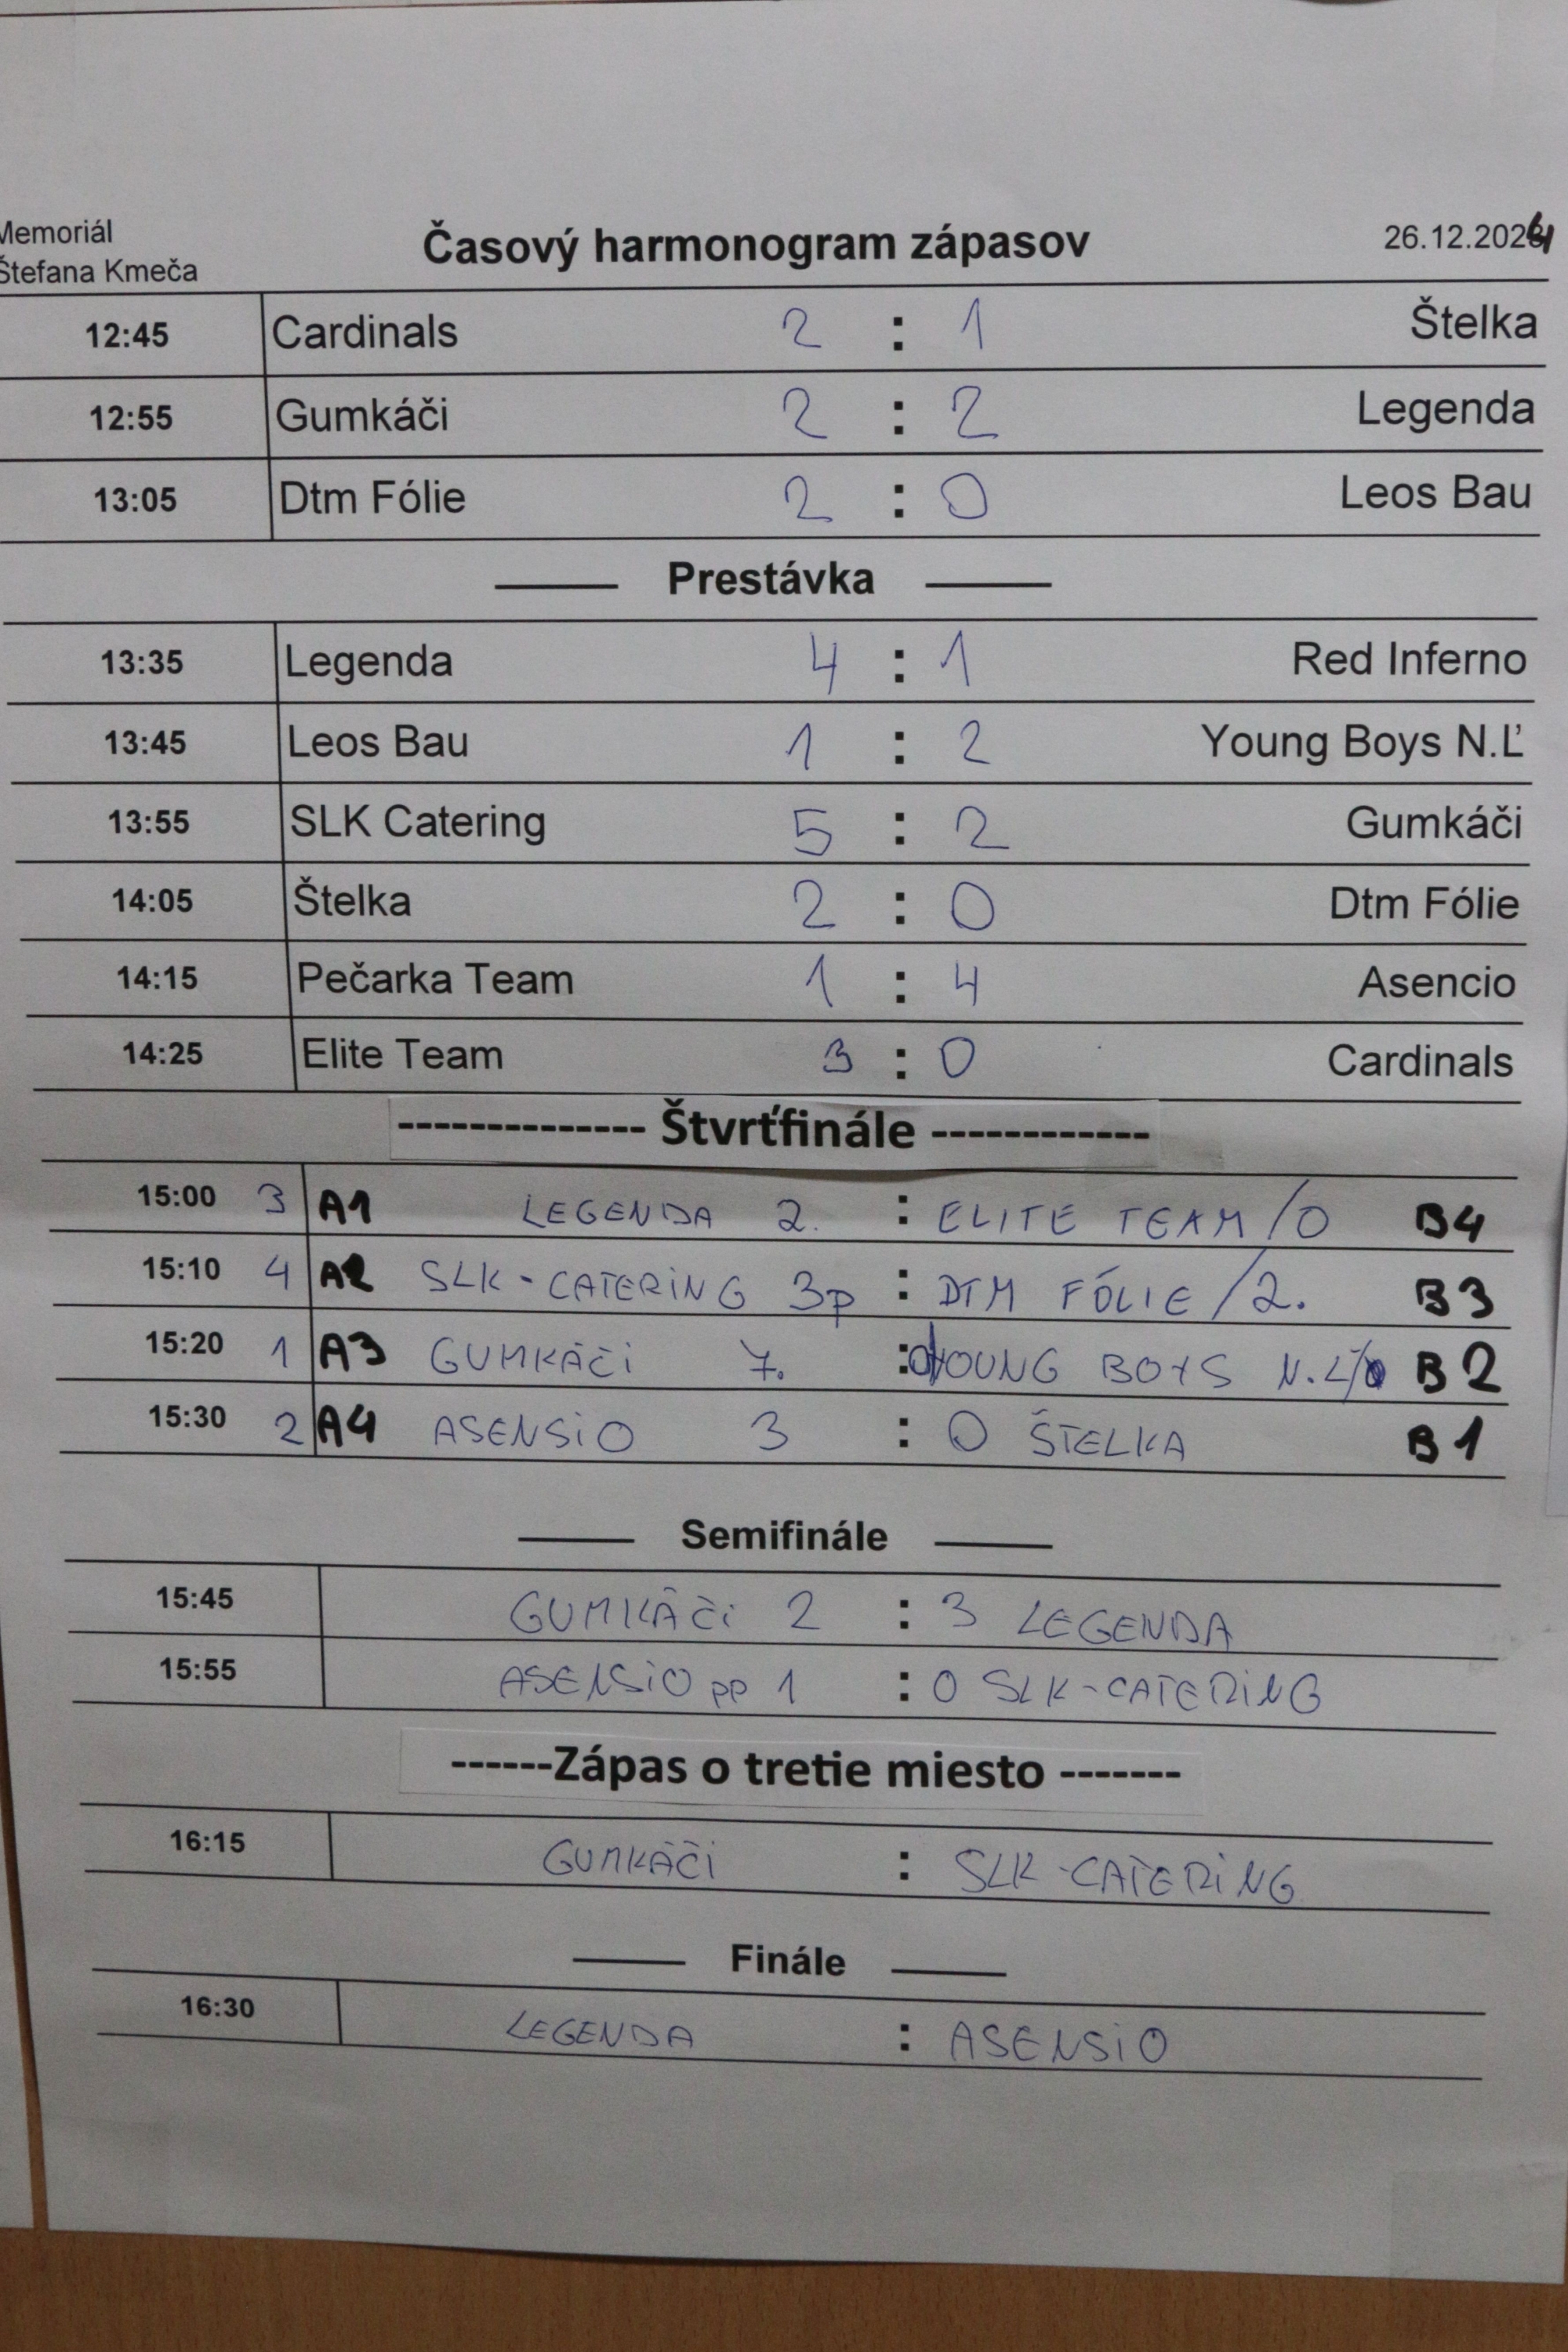 Memoriál
Štefana Kmeča
Časový harmonogram zápasov
26.12.2024
12:45 Cardinals 2 : 1 Štelka
12:55 Gumkáči 2 : 2 Legenda
13:05 Dtm Fólie 2 : 0 Leos Bau
Prestávka
13:35 Legenda 4 : 1 Red Inferno
13:45 Leos Bau 1 : 2 Young Boys N.Ľ
13:55 SLK Catering 5 : 2 Gumkáči
14:05 Štelka 2 : 0 Dtm Fólie
14:15 Pečarka Team 1 : 4 Asencio
14:25 Elite Team 3 : 0 Cardinals
-------------- Štvrťfinále ------------
15:00 3 A1 LEGENDA 2. : ELITE TEAM /0 B4
15:10 4 A2 SLK-CATERING 3p : DTM FÓLIE /2. B3
15:20 1 A3 GUMKÁČi 7. : YOUNG BOYS N.Ľ B2
15:30 2 A4 ASENSiO 3 : 0 ŠTELKA B1
Semifinále
15:45 GUMKÁČi 2 : 3 LEGENDA
15:55 ASENSiO pp 1 : 0 SLK-CATERiNG
------Zápas o tretie miesto -------
16:15 GUMKÁČi : SLK-CATERiNG
Finále
16:30 LEGENDA : ASENSiO